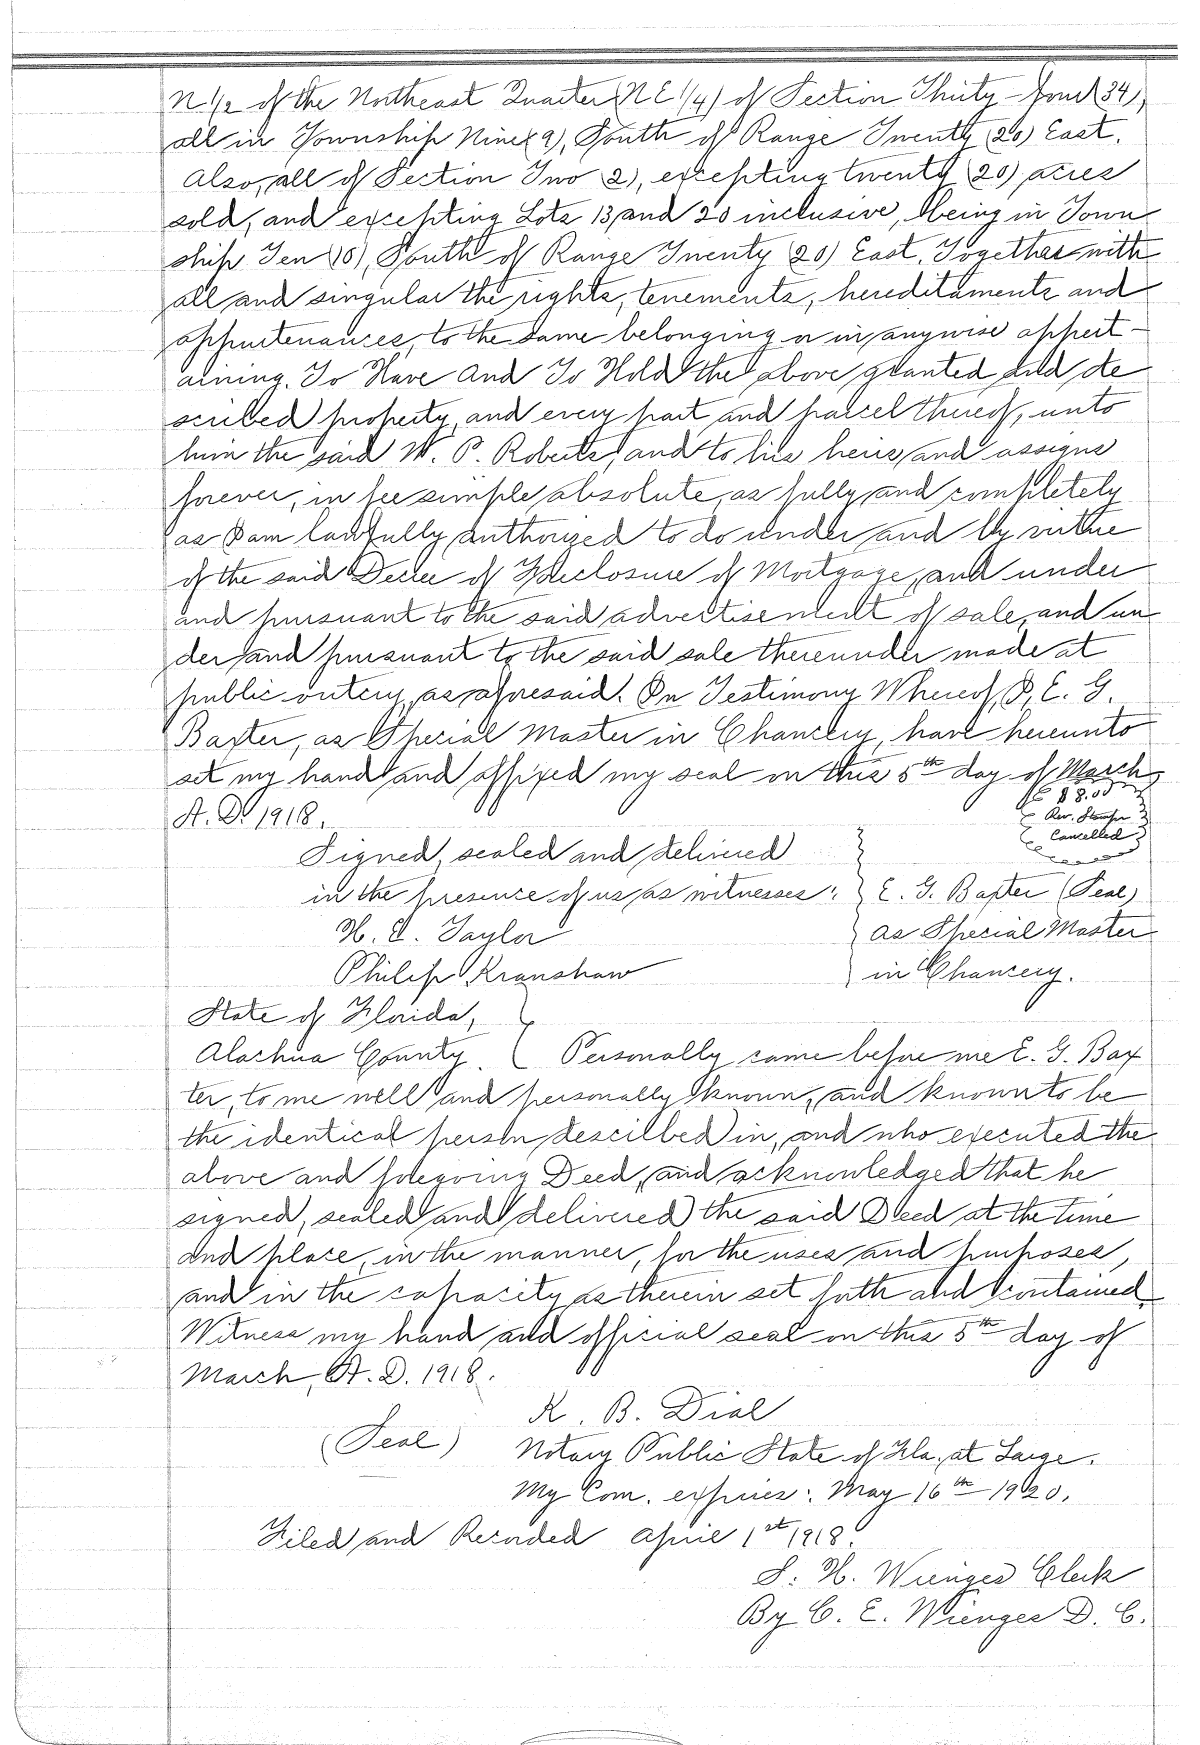 N 1/2 of the Northeast Quarter (N E 1/4) of Section Thirty-four (34),
all in Township Nine (9), South of Range Twenty (20) East.
Also, all of Section Two (2), excepting twenty (20) acres
sold, and excepting Lots 13 and 20 inclusive, being in Town
ship Ten (10), South of Range Twenty (20) East. Together with
all and singular the rights, tenements, hereditaments and
appurtenances, to the same belonging or in anywise appert-
aining. To Have And To Hold the above granted and de
scribed property, and every part and parcel thereof, unto
him the said W. P. Roberts, and to his heirs and assigns
forever, in fee simple absolute, as fully and completely
as I am lawfully authorized to do under and by virtue
of the said Decree of Foreclosure of Mortgage, and under
and pursuant to the said advertisement of sale, and un
der and pursuant to the said sale thereunder made at
public outcry, as aforesaid. In Testimony Whereof, I, E. G.
Baxter, as Special Master in Chancery, have hereunto
set my hand and affixed my seal on this 5th day of March,
A. D. 1918.
$8.00
Rev. Stamps
Cancelled
Signed, sealed and delivered
in the presence of us as witnesses:
E. G. Baxter (Seal)
H. L. Taylor
as Special Master
Philip Kranshaw
in Chancery.
State of Florida,
Alachua County. Personally came before me E. G. Bax
ter, to me well and personally known, and known to be
the identical person described in, and who executed the
above and foregoing Deed, and acknowledged that he
signed, sealed and delivered the said Deed at the time
and place, in the manner, for the uses and purposes,
and in the capacity as therein set forth and contained.
Witness my hand and official seal on this 5th day of
March, A. D. 1918.
K. B. Dial
(Seal) Notary Public State of Fla. at Large.
My Com. expires: May 16th 1920.
Filed and Recorded April 1st 1918.
S. H. Wienges Clerk
By C. E. Wienges D. C.